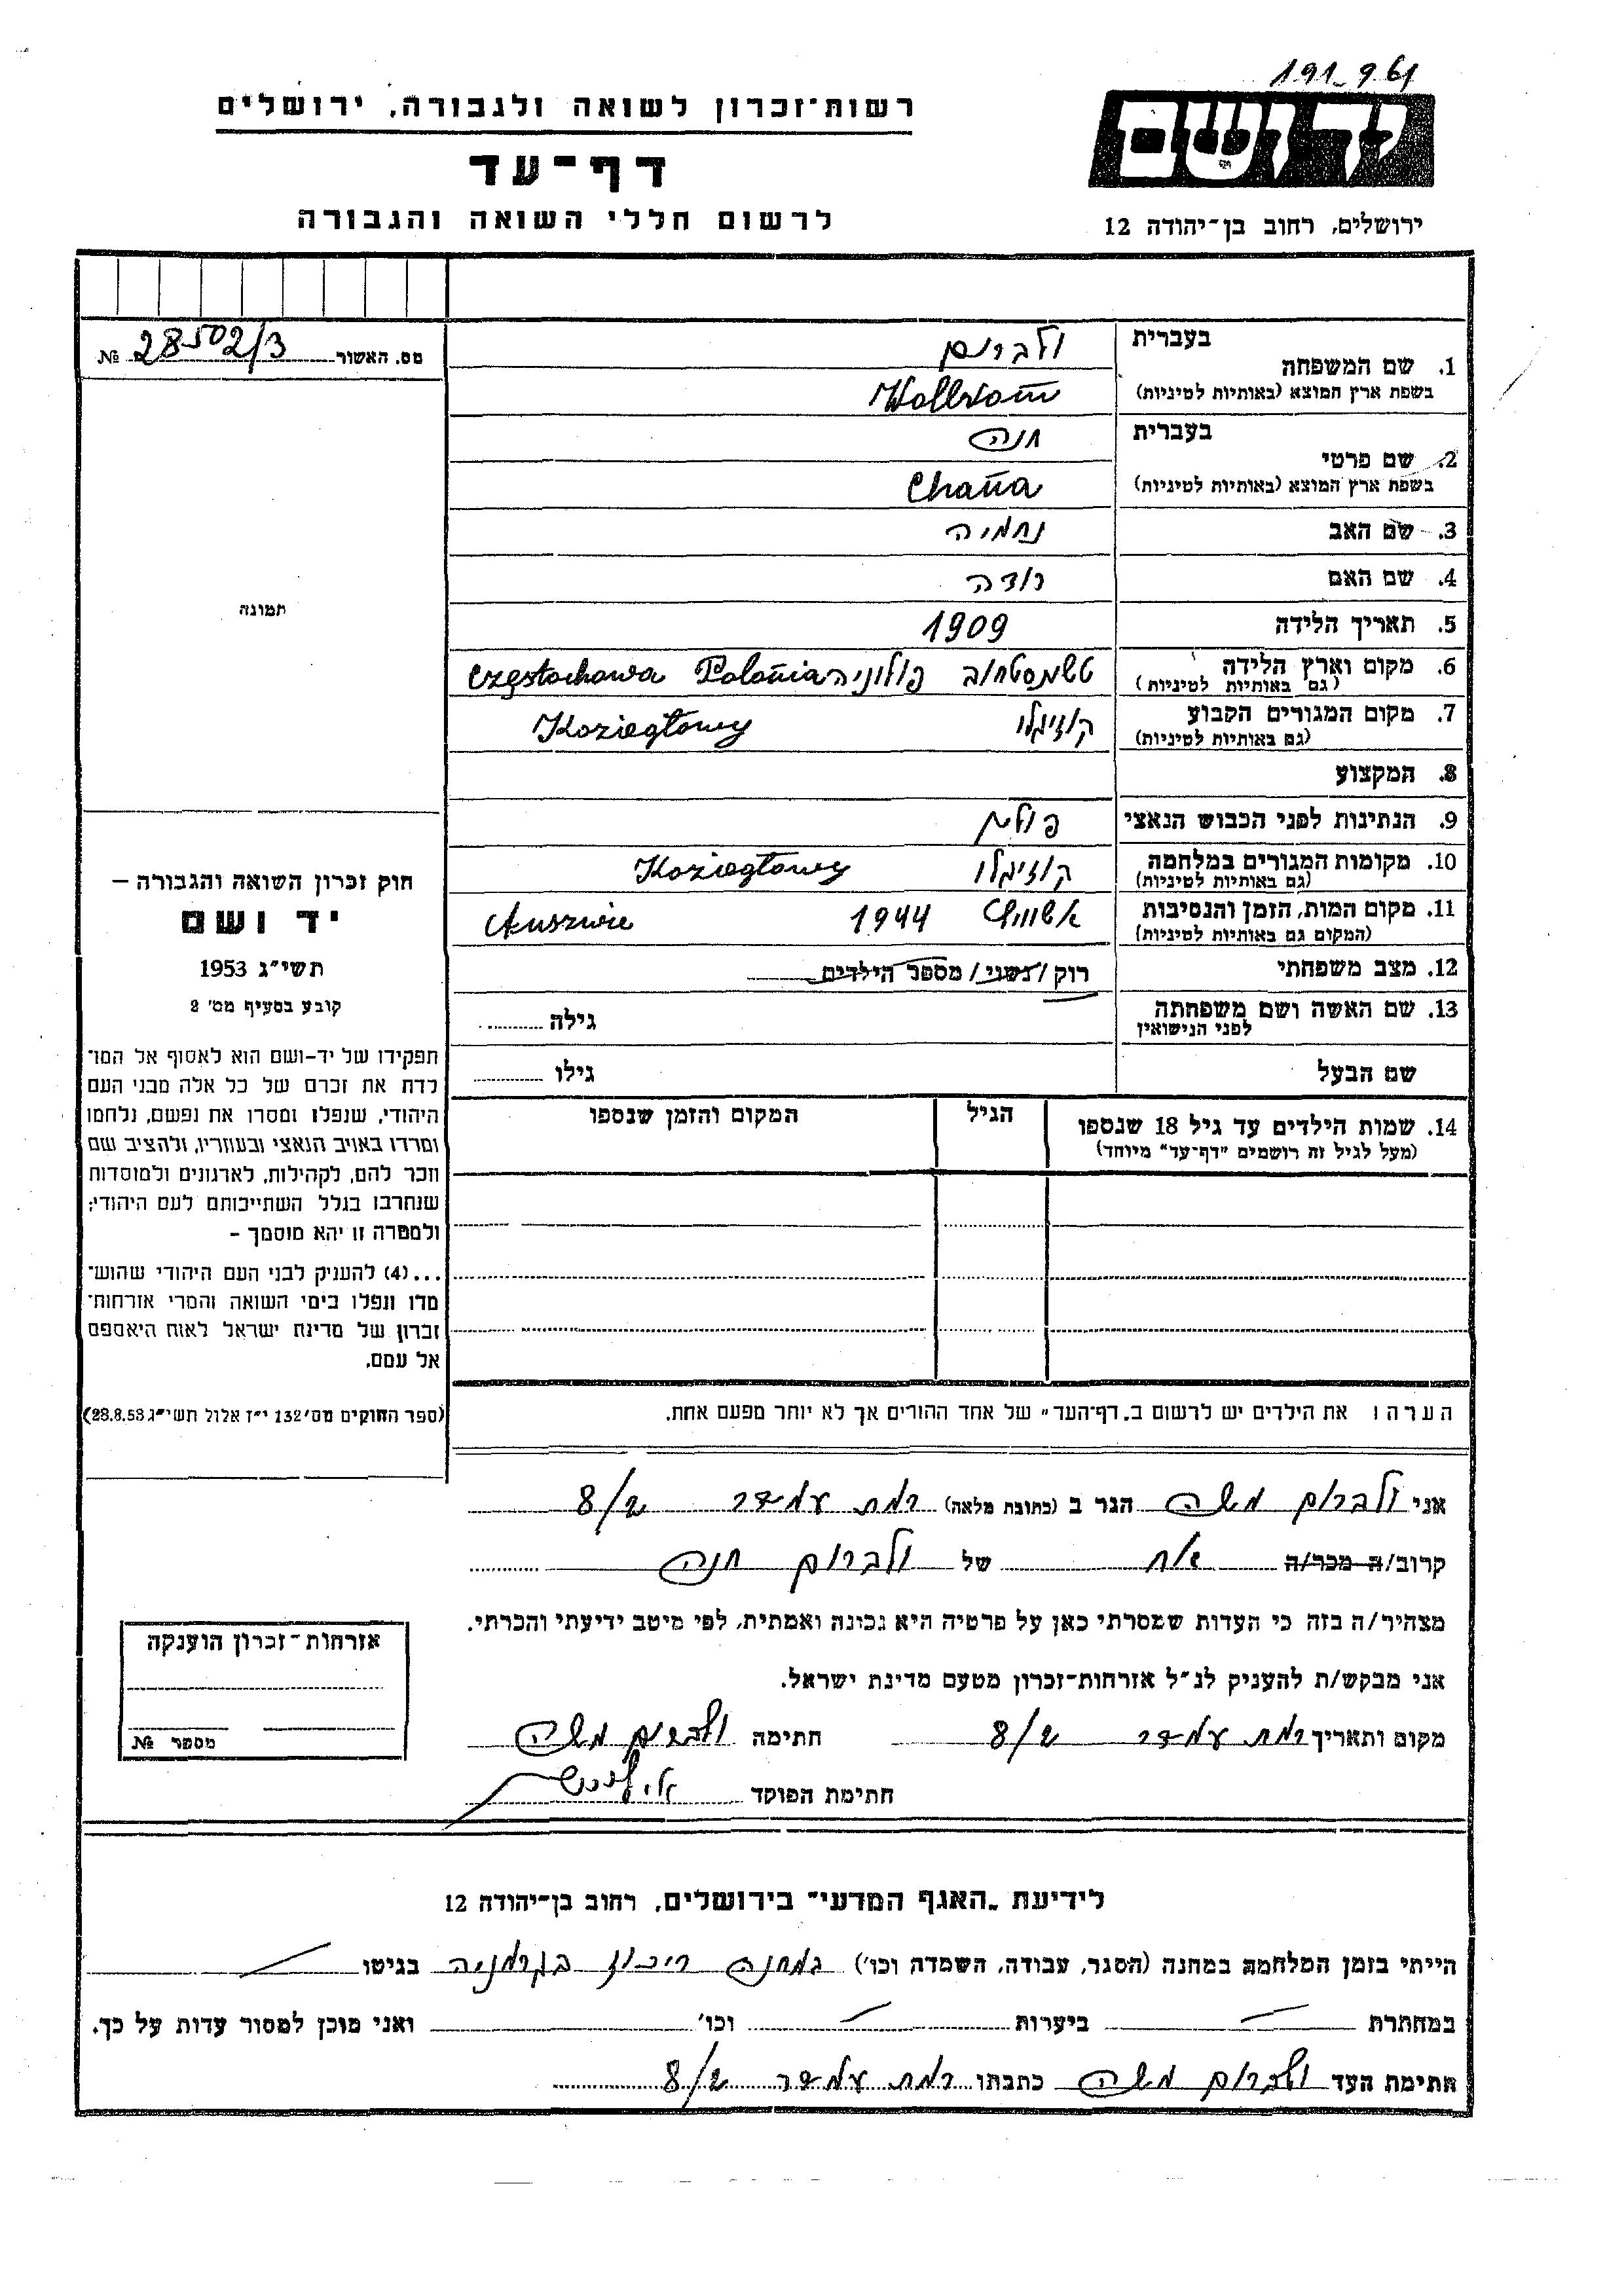 191_961
רשות־זכרון לשואה ולגבורה, ירושלים
דף־עד
לרשום חללי השואה והגבורה
יד ושם
ירושלים, רחוב בן־יהודה 12
מס. האשור 28502/3 №
תמונה
חוק זכרון השואה והגבורה –
יד ושם
תשי״ג 1953
קובע בסעיף מס׳ 2
תפקידו של יד-ושם הוא לאסוף אל המו־
לדת את זכרם של כל אלה מבני העם
היהודי, שנפלו ומסרו את נפשם, נלחמו
ומרדו באויב הנאצי ובעוזריו, ולהציב שם
וזכר להם, לקהילות, לארגונים ולמוסדות
שנחרבו בגלל השתייכותם לעם היהודי;
ולמטרה זו יהא מוסמך –
...(4) להעניק לבני העם היהודי שהוש־
מדו ונפלו בימי השואה והמרי אזרחות־
זכרון של מדינת ישראל לאות היאספם
אל עמם.
(ספר החוקים מס׳ 132 י״ז אלול תשי״ג 28.8.53)
בעברית ולברום
1. שם המשפחה
בשפת ארץ המוצא (באותיות לטיניות) Wolbrom
בעברית חנה
2. שם פרטי
בשפת ארץ המוצא (באותיות לטיניות) Chana
3. שם האב נחמיה
4. שם האם
5. תאריך הלידה 1909
6. מקום וארץ הלידה טשנסטחוב פולוניה Polonia Częstochowa
(גם באותיות לטיניות)
7. מקום המגורים הקבוע קוזיגלו Koziegłowy
(גם באותיות לטיניות)
8. המקצוע
9. הנתינות לפני הכבוש הנאצי פולין
10. מקומות המגורים במלחמה קוזיגלו Koziegłowy
(גם באותיות לטיניות)
11. מקום המות, הזמן והנסיבות אשוויץ 1944 Auszwic
(המקום גם באותיות לטיניות)
12. מצב משפחתי רוק/נשוי/ מספר הילדים
13. שם האשה ושם משפחתה גילה
לפני הנישואין
שם הבעל גילו
14. שמות הילדים עד גיל 18 שנספו הגיל המקום והזמן שנספו
(מעל לגיל זה רושמים "דף־עד" מיוחד)
הערה: את הילדים יש לרשום ב„דף־העד" של אחד ההורים אך לא יותר מפעם אחת.
אני ולברום משה הגר ב (כתובת מלאה) רמת עמידר ש/8
קרוב/ה מכר/ה אח של ולברום חנה
מצהיר/ה בזה כי העדות שמסרתי כאן על פרטיה היא נכונה ואמתית, לפי מיטב ידיעתי והכרתי.
אני מבקש/ת להעניק לנ״ל אזרחות־זכרון מטעם מדינת ישראל.
מקום ותאריך רמת עמידר ש/8 חתימה ולברום משה
חתימת הפוקד
אזרחות־זכרון הוענקה
מספר №
לידיעת „האגף המדעי" בירושלים, רחוב בן־יהודה 12
הייתי בזמן המלחמה במחנה (הסגר, עבודה, השמדה וכו׳) במחנה ריכוז בגרמניה בגיטו
במחתרת ביערות וכו׳ ואני מוכן למסור עדות על כך.
חתימת העד ולברום משה כתבתו רמת עמידר ש/8